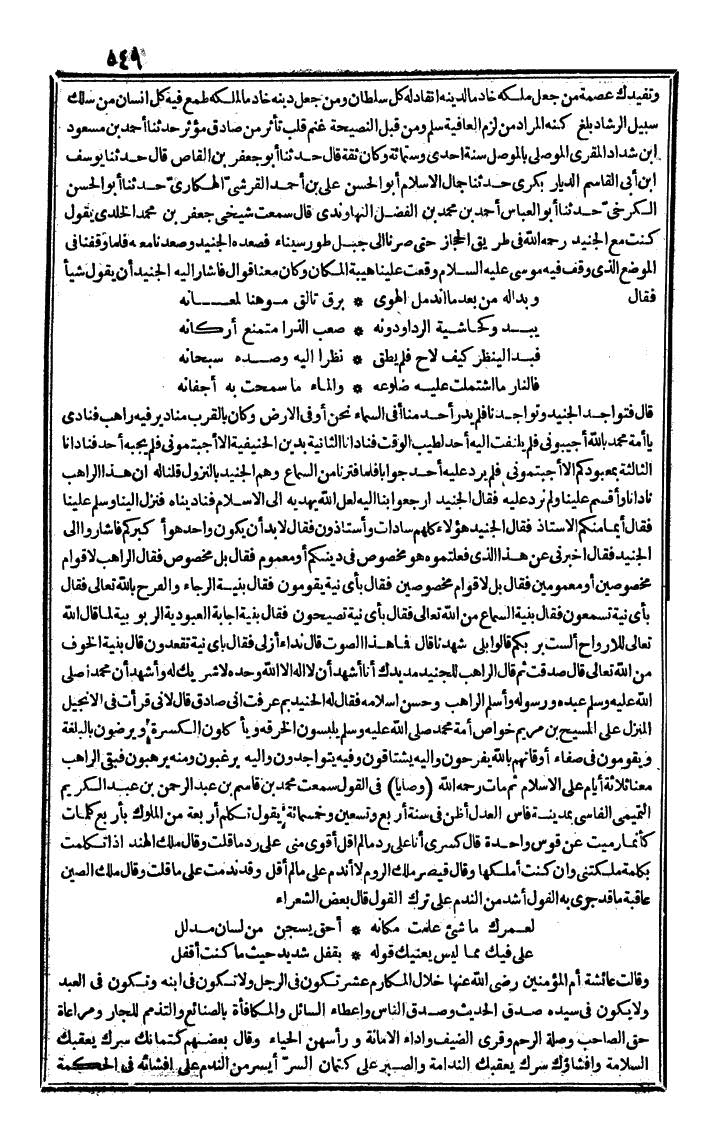 ٥٤٩
وتفيدك عصمة من جعل ملكه خادما لدينه انقاد له كل سلطان ومن جعل دينه خادما لملكه طمع فيه كل انسان من سلك
سبيل الرشاد بلغ كنه المراد من لزم العافية سلم ومن قبل النصيحة غنم قلب تأثر من صادق مؤثر حدثنا أحمد بن مسعود
ابن شداد المقرى الموصلى بالموصل سنة احدى وستمائة وكان ثقة قال حدثنا أبو جعفر بن القاص قال حدثنا يوسف
ابن أبى القاسم الديار بكرى حدثنا جمال الاسلام أبو الحسن على بن أحمد القرشى الهكارى حدثنا أبو الحسن
الكرخى حدثنا أبو العباس أحمد بن محمد بن الفضل النهاوندى قال سمعت شيخى جعفر بن محمد الخلدى يقول
كنت مع الجنيد رحمه الله فى طريق الحجاز حتى صرنا الى جبل طور سيناء فصعده الجنيد وصعدنا معه فلما وقفنا فى
الموضع الذى وقف فيه موسى عليه السلام وقعت علينا هيبة المكان وكان معنا قوال فاشار اليه الجنيد أن يقول شيأ
فقال
وبداله من بعد ما اندمل الهوى * برق تالق موهنا لمعانه
يبدو كحاشية الرداودونه * صعب الذرا متمنع أركانه
فبدا لينظر كيف لاح فلم يطق * نظرا اليه وصده سبحانه
فالنار ما اشتملت عليه ضلوعه * والماء ما سمحت به أجفانه
قال فتواجد الجنيد وتواجدنا فلم يدر أحد منا أفى السماء نحن أو فى الارض وكان بالقرب منا دير فيه راهب فنادى
يا أمة محمد بالله أجيبونى فلم يلتفت اليه أحد لطيب الوقت فنادانا الثانية بدين الحنيفية الا أجبتمونى فلم يجبه أحد فنادانا
الثالثة بمعبودكم الا أجبتمونى فلم يرد عليه أحد جوابا فلما فترنا من السماع وهم الجنيد بالنزول قلنا له ان هذا الراهب
نادانا وأقسم علينا ولم نرد عليه فقال الجنيد ارجعوا بنا اليه لعل الله يهديه الى الاسلام فناديناه فنزل الينا وسلم علينا
فقال أيما منكم الاستاذ فقال الجنيد هؤلاء كلهم سادات وأستاذون فقال لابد أن يكون واحد هو أكبركم فاشاروا الى
الجنيد فقال اخبرنى عن هذا الذى فعلتموه هو مخصوص فى دينكم أو معموم فقال بل مخصوص فقال الراهب لاقوام
مخصوصين أو معمومين فقال بل لاقوام مخصوصين فقال بأى نية يقومون فقال بنية الرجاء والفرح بالله تعالى فقال
بأى نية تسمعون فقال بنية السماع من الله تعالى فقال بأى نية تصيحون فقال بنية اجابة العبودية الربوبية لما قال الله
تعالى للارواح ألست بربكم قالوا بلى شهدنا قال فاهذا الصوت قال نداء أزلى فقال باى نية تقعدون قال بنية الخوف
من الله تعالى قال صدقت ثم قال الراهب للجنيد مد يدك أنا أشهد أن لا اله الا الله وحده لا شريك له وأشهد أن محمدا صلى
الله عليه وسلم عبده ورسوله وأسلم الراهب وحسن اسلامه فقال له الجنيد بم عرفت انى صادق قال لانى قرأت فى الانجيل
المنزل على المسيح بن مريم خواص أمة محمد صلى الله عليه وسلم يلبسون الخرقه ويأكلون الكسرة ويرضون بالبلغة
ويقومون فى صفاء أوقاتهم بالله يفرحون واليه يشتاقون وفيه يتواجدون واليه يرغبون ومنه يرهبون فبقى الراهب
معنا ثلاثة أيام على الاسلام ثم مات رحمه الله (وصايا) فى القول سمعت محمد بن قاسم بن عبد الرحمن بن عبد الكريم
التميمى الفاسى بمدينة فاس العدل أظن فى سنة أربع وتسعين وخمسمائة يقول تكلم أربعة من الملوك بأربع كلمات
كأنما رميت عن قوس واحدة قال كسرى أنا على رد ما لم اقل أقوى منى على رد ما قلت وقال ملك الهند اذا تكلمت
بكلمة ملكتنى وان كنت أملكها وقال قيصر ملك الروم لا أندم على ما لم أقل وقد ندمت على ما قلت وقال ملك الصين
عاقبة ما قد جرى به القول أشد من الندم على ترك القول قال بعض الشعراء
لعمرك ما شئ علمت مكانه * أحق بسجن من لسان مدلل
على فيك مما ليس يعنيك قوله * بقفل شديد حيث ما كنت أقفل
وقالت عائشة أم المؤمنين رضى الله عنها خلال المكارم عشر تكون فى الرجل ولا تكون فى ابنه وتكون فى العبد
ولا يكون فى سيده صدق الحديث وصدق الناس واعطاء السائل والمكافأة بالصنائع والتذمم للجار ومراعاة
حق الصاحب وصلة الرحم وقرى الضيف واداء الامانة ورأسهن الحياء وقال بعضهم كتمانك سرك يعقبك
السلامة وافشاؤك سرك يعقبك الندامة والصبر على كتمان السر أيسر من الندم على افشائه فى الحكمة